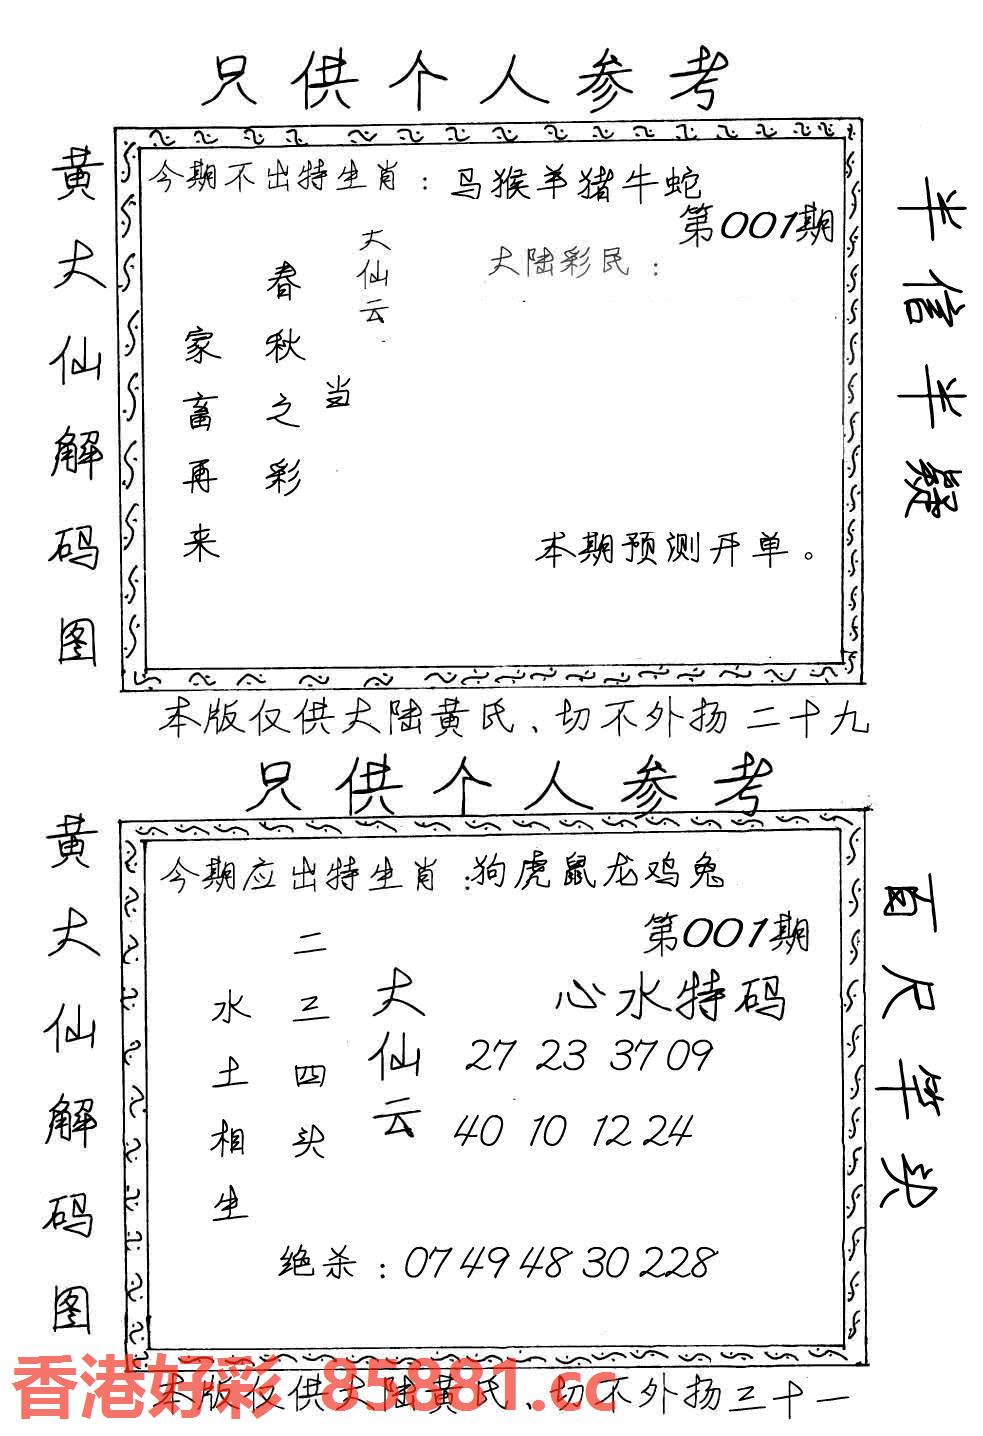 只供个人参考
黄大仙解码图
今期不出特生肖：马猴羊猪牛蛇
第001期
大仙云
大陆彩民：
春秋之彩
家畜再来
当
本期预测开单。
半信半疑
本版仅供大陆黄氏、切不外扬二十九
只供个人参考
黄大仙解码图
今期应出特生肖：狗虎鼠龙鸡兔
第001期
大仙云
二三四头
水土相生
心水特码
27 23 37 09
40 10 12 24
绝杀：07 49 48 30 228
百尺竿头
本版仅供大陆黄氏、切不外扬三十一
香港好彩 85881.cc